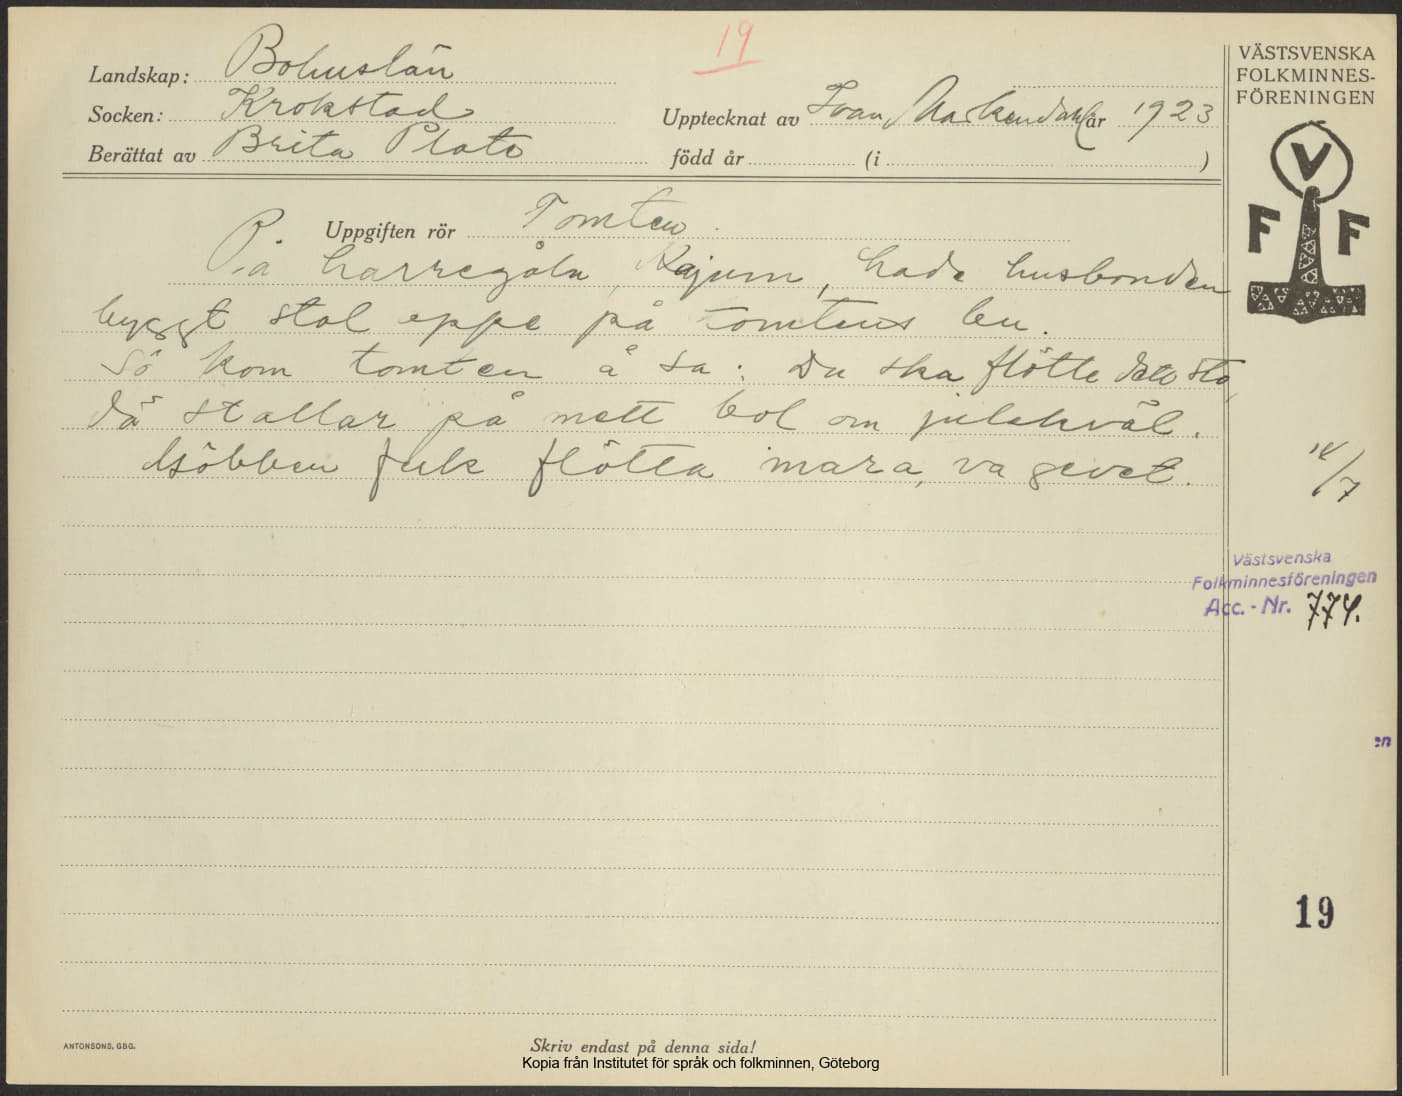 19
Landskap: Bohuslän
Socken: Krokstad
Berättat av Brita Plato
Upptecknat av Ivan år 1923
född år (i )
Uppgiften rör Tomten
På harregåln, Kajum, hade husbonden
byggt stal oppe på tomtens bu.
Sö kom tomten å sa: Du ska flötte sta,
dä stallar på mett bol om julekväl.
Göbben feck flötta mara, va gevet.
VÄSTSVENSKA
FOLKMINNES-
FÖRENINGEN
V
F F
14/7
Västsvenska
Folkminnesföreningen
Acc.-Nr. 774.
en
19
ANTONSONS, GBG.
Skriv endast på denna sida!
Kopia från Institutet för språk och folkminnen, Göteborg